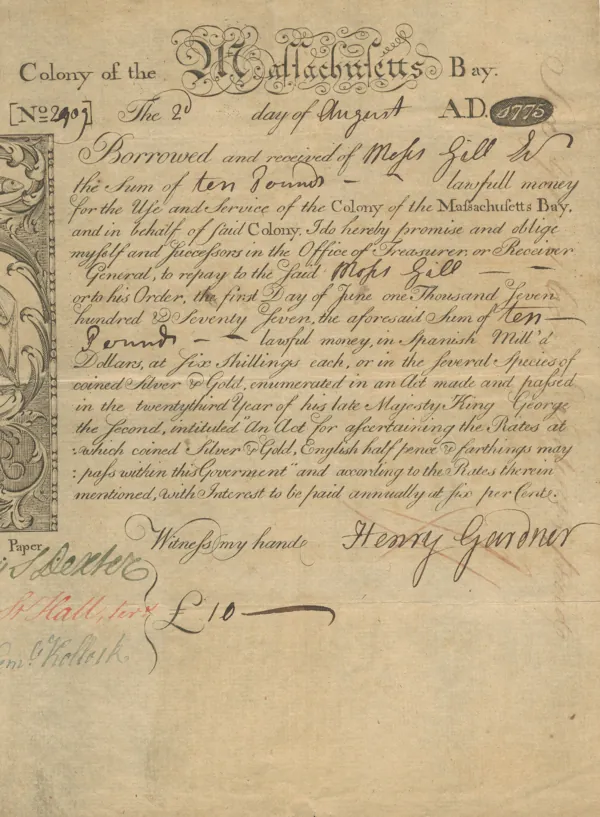 Colony of the Massachusetts Bay.
[No 2909] The 2d day of August A.D. 1775
Borrowed and received of Moses Gill Es
the Sum of ten Pounds — - lawfull money
for the Use and Service of the Colony of the Massachusetts Bay.
and in behalf of said Colony, I do hereby promise and oblige
myself and Successors in the Office of Treasurer, or Receiver
General, to repay to the said Moses Gill — —
or to his Order, the first Day of June one Thousand Seven
hundred & Seventy Seven, the aforesaid Sum of ten —
Pounds - — lawful money, in Spanish Mill'd
Dollars, at six Shillings each, or in the several Species of
coined Silver & Gold, enumerated in an Act made and passed
in the twentythird Year of his late Majesty King George
the Second, intituled "An Act for ascertaining the Rates at
:which coined Silver & Gold, English half pence & farthings may
:pass within this Goverment" and according to the Rates therein
mentioned, with Interest to be paid annually at six per Cent.
Paper Witness my hand Henry Gardner
S Dexter
St Hall, ters £10 —
Kollock